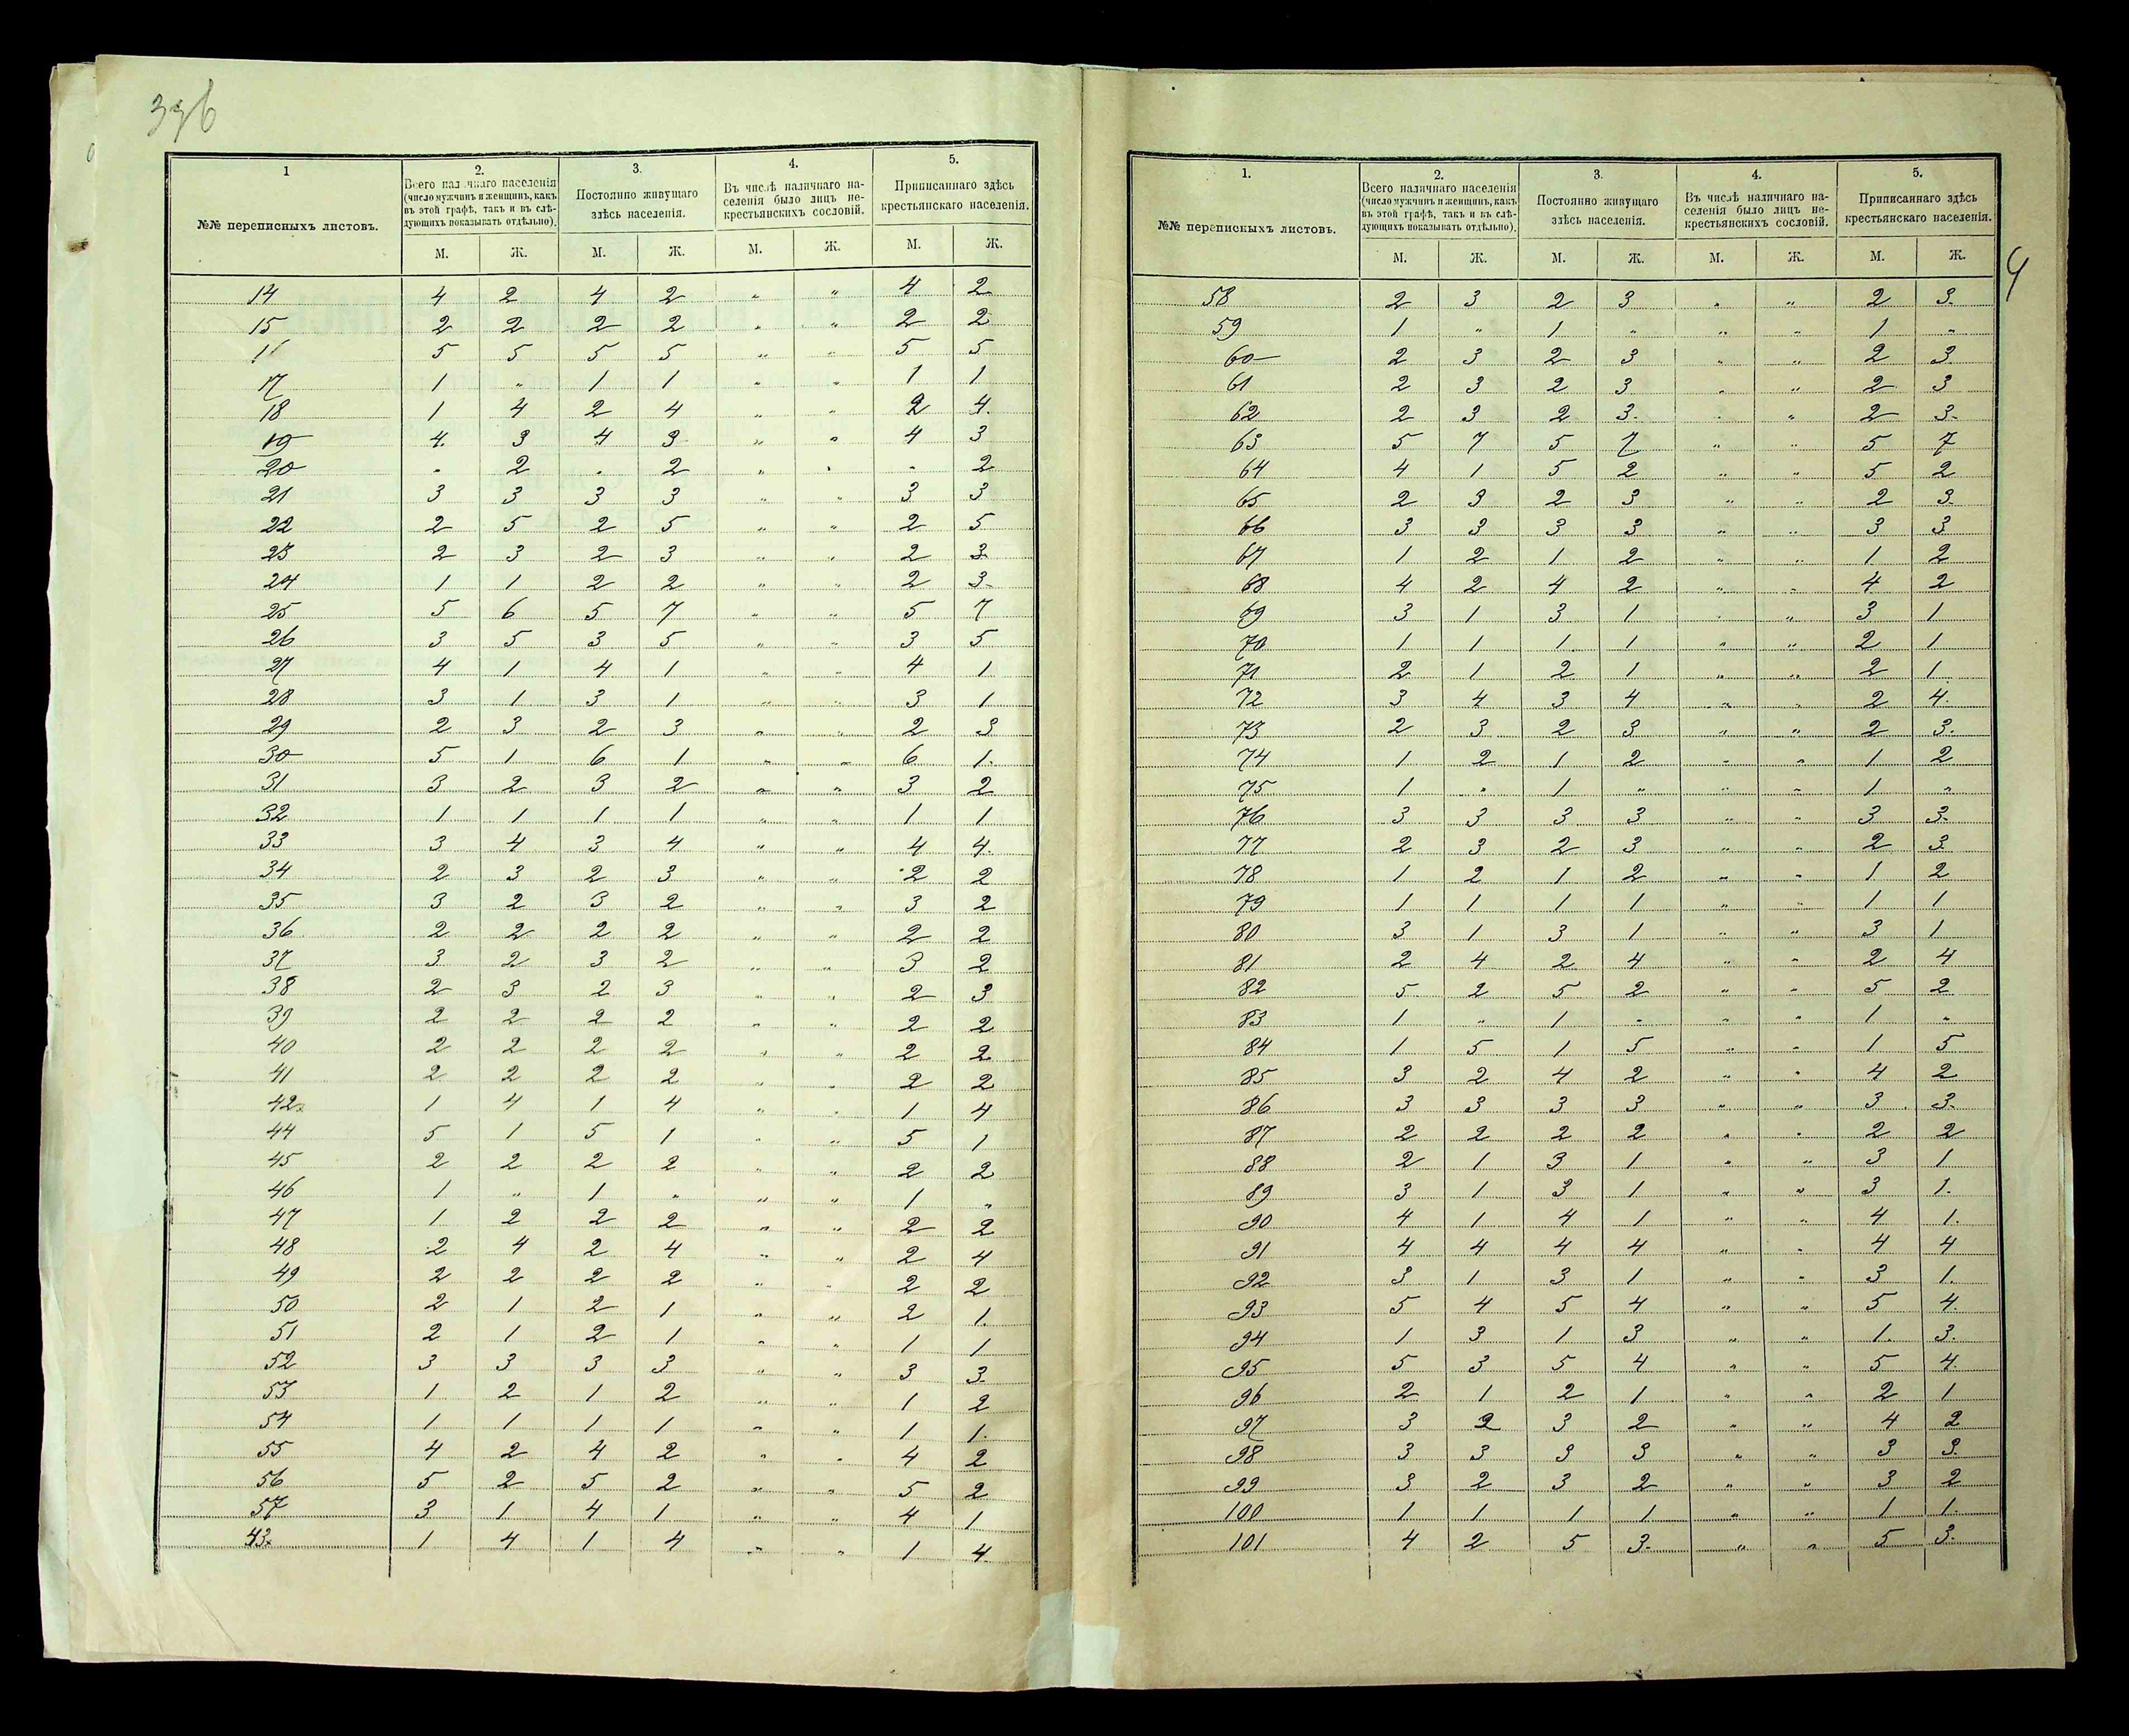 336
1 2. 3. 4. 5.
№№ переписныхъ листовъ.
Всего наличнаго населенія
(число мужчинъ и женщинъ, какъ
въ этой графѣ, такъ и въ слѣ-
дующихъ показывать отдѣльно).
Постоянно живущаго
здѣсь населенія.
Въ числѣ наличнаго на-
селенія было лицъ не-
крестьянскихъ сословій.
Приписаннаго здѣсь
крестьянскаго населенія.
М. Ж. М. Ж. М. Ж. М. Ж.
14 4 2 4 2 " " 4 2
15 2 2 2 2 " " 2 2
16 5 5 5 5 " " 5 5
17 1 " 1 1 " " 1 1
18 1 4 2 4 " " 2 4.
19 4. 3 4 3 " " 4 3
20 " 2 " 2 " " " 2
21 3 3 3 3 " " 3 3
22 2 5 2 5 " " 2 5
23 2 3 2 3 " " 2 3
24 1 1 2 2 " " 2 3
25 5 6 5 7 " " 5 7
26 3 5 3 5 " " 3 5
27 4 1 4 1 " " 4 1
28 3 1 3 1 " " 3 1
29 2 3 2 3 " " 2 3
30 5 1 6 1 " " 6 1.
31 3 2 3 2 " " 3 2
32 1 1 1 1 " " 1 1
33 3 4 3 4 " " 4 4.
34 2 3 2 3 " " 2 2
35 3 2 3 2 " " 3 2
36 2 2 2 2 " " 2 2
37 3 2 3 2 " " 3 2
38 2 3 2 3 " " 2 3
39 2 2 2 2 " " 2 2
40 2 2 2 2 " " 2 2
41 2 2 2 2 " " 2 2
42x 1 4 1 4 " " 1 4
44 5 1 5 1 " " 5 1
45 2 2 2 2 " " 2 2
46 1 " 1 " " " 1 "
47 1 2 2 2 " " 2 2
48 2 4 2 4 " " 2 4
49 2 2 2 2 " " 2 2
50 2 1 2 1 " " 2 1.
51 2 1 2 1 " " 1 1
52 3 3 3 3 " " 3 3
53 1 2 1 2 " " 1 2
54 1 1 1 1 " " 1 1.
55 4 2 4 2 " " 4 2
56 5 2 5 2 " " 5 2
57 3 1 4 1 " " 4 1
43x 1 4 1 4 " " 1 4
4
1. 2. 3. 4. 5.
№№ переписныхъ листовъ.
Всего наличнаго населенія
(число мужчинъ и женщинъ, какъ
въ этой графѣ, такъ и въ слѣ-
дующихъ показывать отдѣльно).
Постоянно живущаго
здѣсь населенія.
Въ числѣ наличнаго на-
селенія было лицъ не-
крестьянскихъ сословій.
Приписаннаго здѣсь
крестьянскаго населенія.
М. Ж. М. Ж. М. Ж. М. Ж.
58 2 3 2 3 " " 2 3.
59 1 " 1 " " " 1 "
60 2 3 2 3 " " 2 3
61 2 3 2 3 " " 2 3
62 2 3 2 3. " " 2 3.
63 5 7 5 7 " " 5 7
64 4 1 5 2 " " 5 2
65 2 3 2 3 " " 2 3
66 3 3 3 3 " " 3 3
67 1 2 1 2 " " 1 2
68 4 2 4 2 " " 4 2
69 3 1 3 1 " " 3 1
70 1 1 1 1 " " 2 1
71 2 1 2 1 " " 2 1
72 3 4 3 4 " " 2 4.
73 2 3 2 3 " " 2 3.
74 1 2 1 2 " " 1 2
75 1 " 1 " " " 1 "
76 3 3 3 3 " " 3 3.
77 2 3 2 3 " " 2 3
78 1 2 1 2 " " 1 2
79 1 1 1 1 " " 1 1
80 3 1 3 1 " " 3 1
81 2 4 2 4 " " 2 4
82 5 2 5 2 " " 5 2
83 1 " 1 " " " 1 "
84 1 5 1 5 " " 1 5
85 3 2 4 2 " " 4 2
86 3 3 3 3 " " 3 3.
87 2 2 2 2 " " 2 2
88 2 1 3 1 " " 3 1
89 3 1 3 1 " " 3 1.
90 4 1 4 1 " " 4 1.
91 4 4 4 4 " " 4 4
92 3 1 3 1 " " 3 1.
93 5 4 5 4 " " 5 4.
94 1 3 1 3 " " 1. 3.
95 5 3 5 4 " " 5 4.
96 2 1 2 1 " " 2 1
97 3 2 3 2 " " 4 2
98 3 3 3 3 " " 3 3.
99 3 2 3 2 " " 3 2
100 1 1 1 1 " " 1 1.
101 4 2 5 3. " " 5 3.